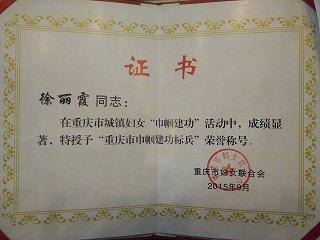 证书
徐丽霞同志：
在重庆市城镇妇女“巾帼建功”活动中，成绩显
著，特授予“重庆市巾帼建功标兵”荣誉称号。
重庆市妇女联合会
2015年9月